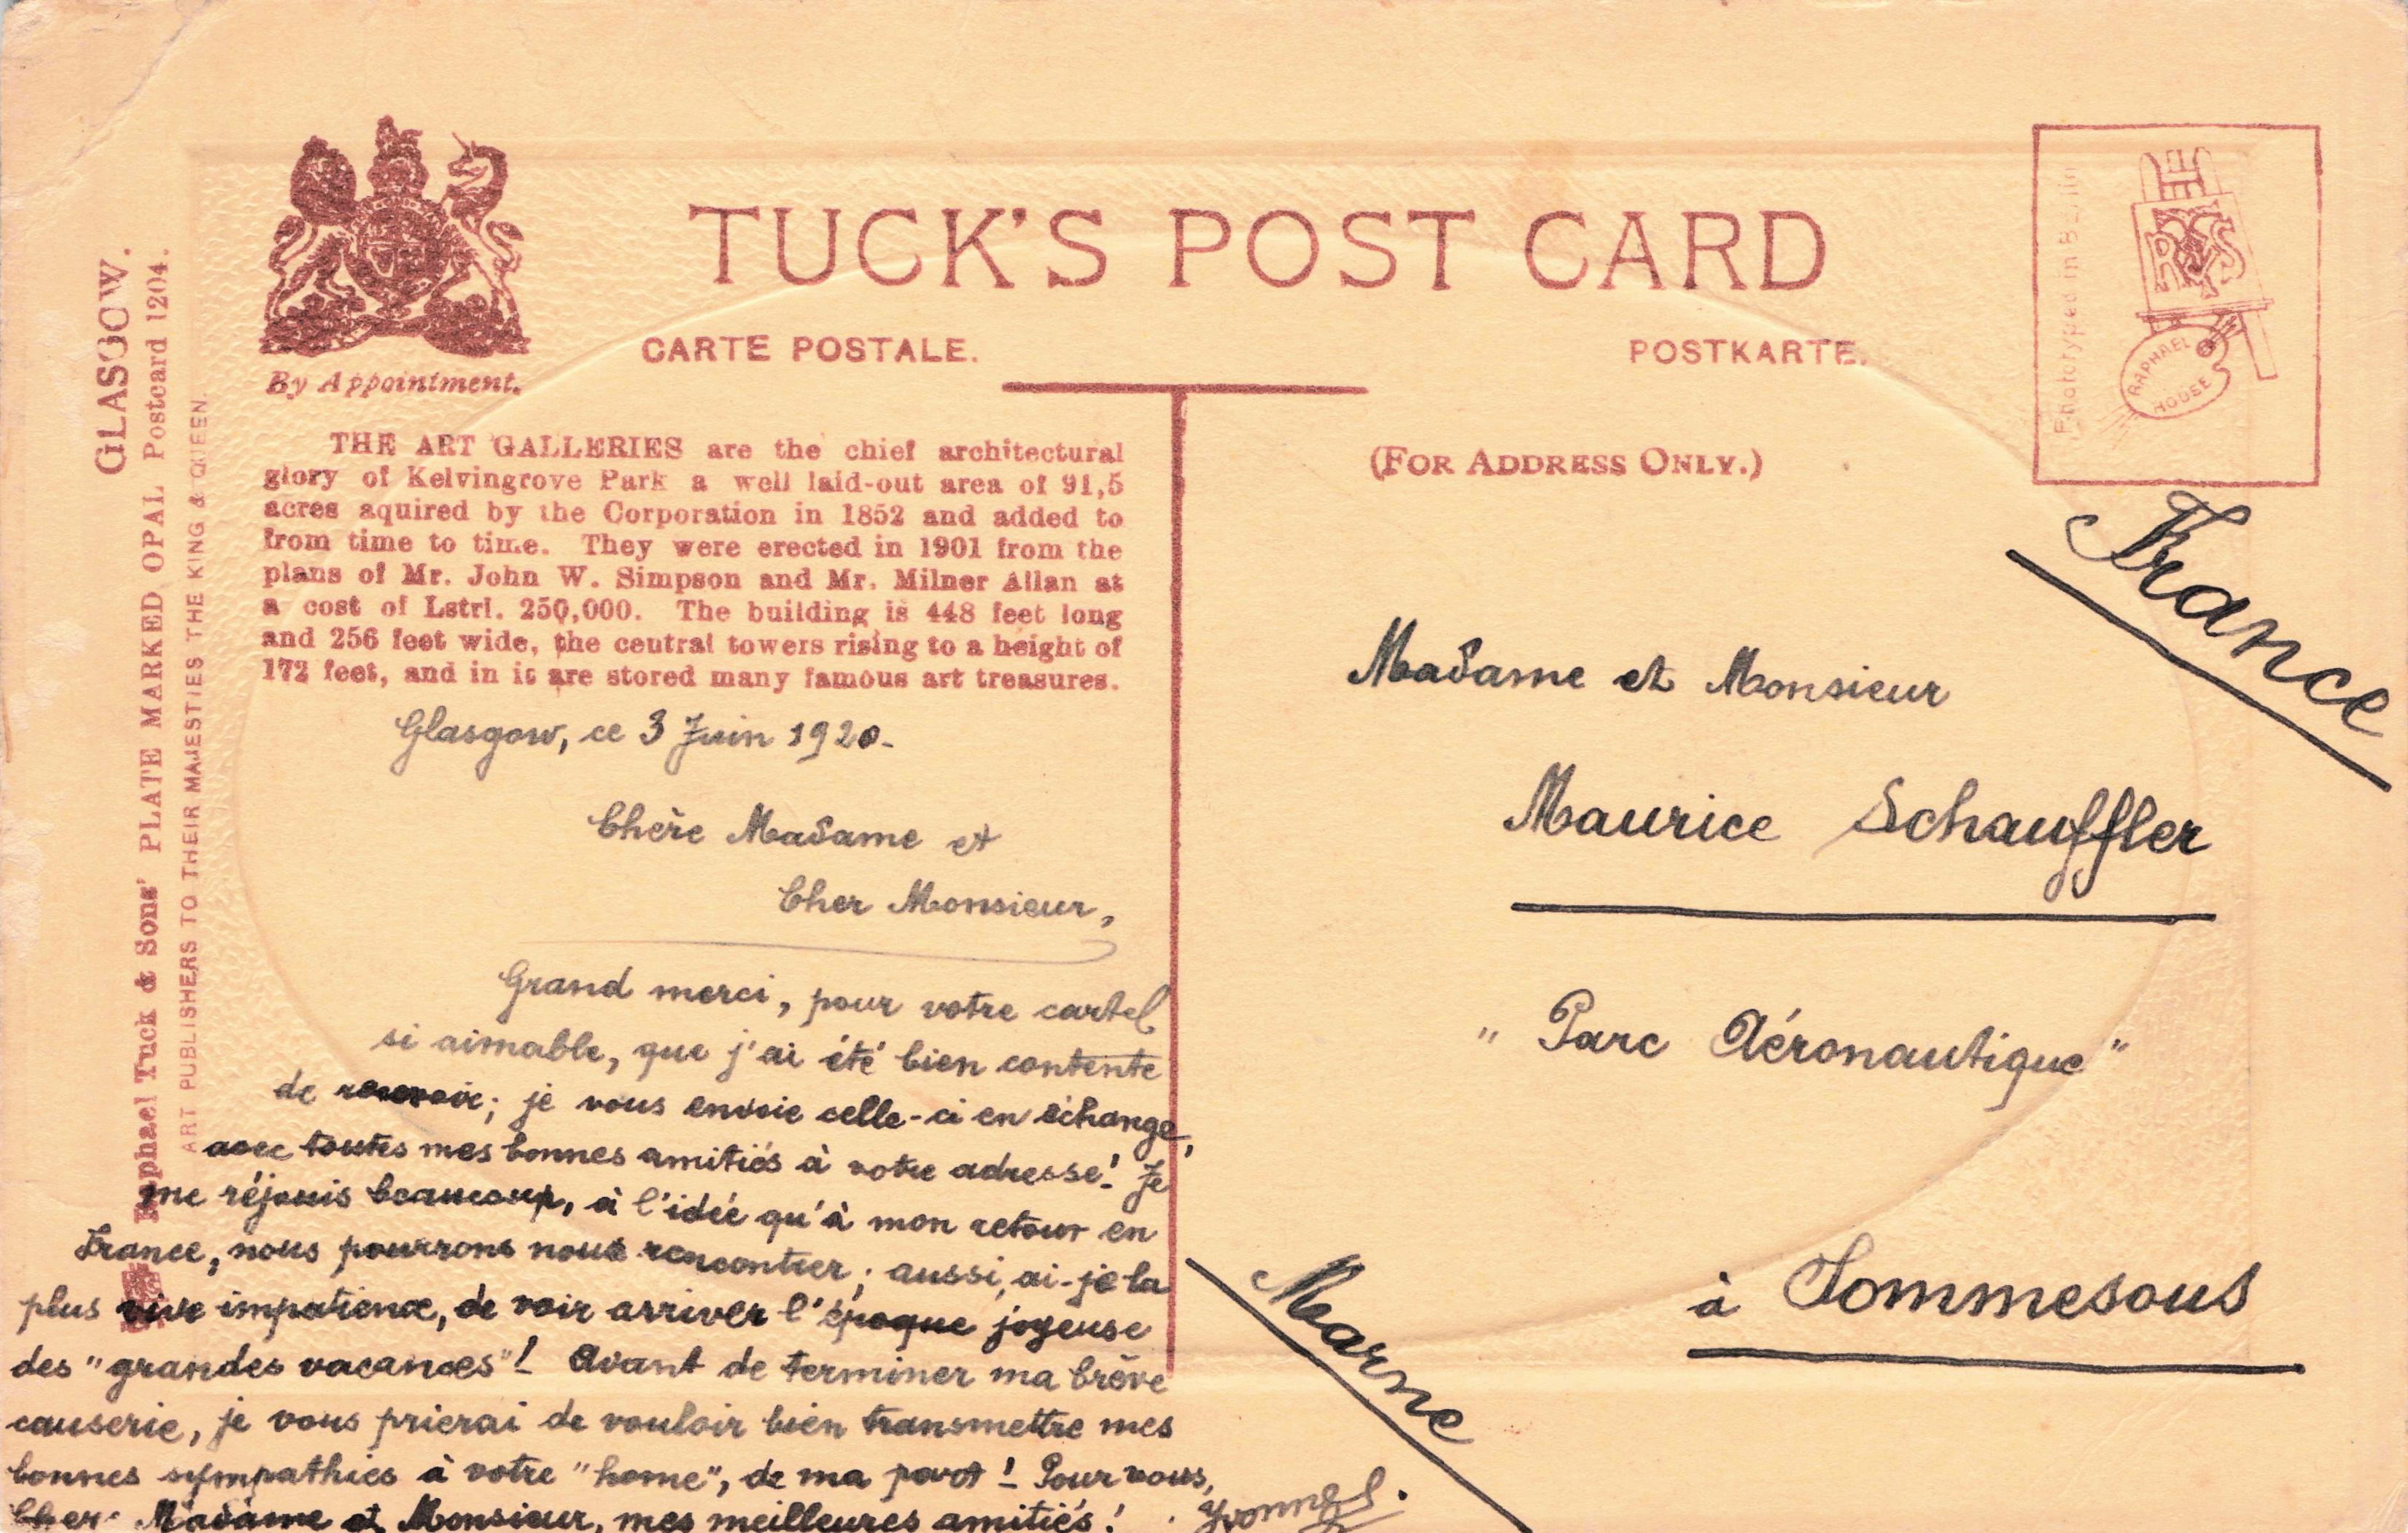 TUCK'S POST CARD
CARTE POSTALE.
POSTKARTE.
By Appointment.
(FOR ADDRESS ONLY.)
Phototyped in Berlin
RTS
RAPHAEL
HOUSE
GLASGOW.
Raphael Tuck & Sons' PLATE MARKED OPAL Postcard 1204.
ART PUBLISHERS TO THEIR MAJESTIES THE KING & QUEEN.
THE ART GALLERIES are the chief architectural
glory of Kelvingrove Park a well laid-out area of 91,5
acres aquired by the Corporation in 1852 and added to
from time to time. They were erected in 1901 from the
plans of Mr. John W. Simpson and Mr. Milner Allan at
a cost of Lstrl. 250,000. The building is 448 feet long
and 256 feet wide, the central towers rising to a height of
172 feet, and in it are stored many famous art treasures.
Glasgow, ce 3 Juin 1920.
Chère Madame et
Cher Monsieur,
Grand merci, pour votre cartel
si aimable, que j'ai été bien contente
de recevoir; je vous envoie celle-ci en échange,
avec toutes mes bonnes amitiés à votre adresse! Je
me réjouis beaucoup, à l'idée qu'à mon retour en
France, nous pourrons nous rencontrer; aussi, ai-je la
plus vive impatience, de voir arriver l'époque joyeuse
des "grandes vacances"! Avant de terminer ma brève
causerie, je vous prierai de vouloir bien transmettre mes
bonnes sympathies à votre "home", de ma part! Pour vous,
Cher Madame et Monsieur, mes meilleures amitiés!
France
Madame et Monsieur
Maurice Schauffler
"Parc Aéronautique"
à Sommesous
Marne